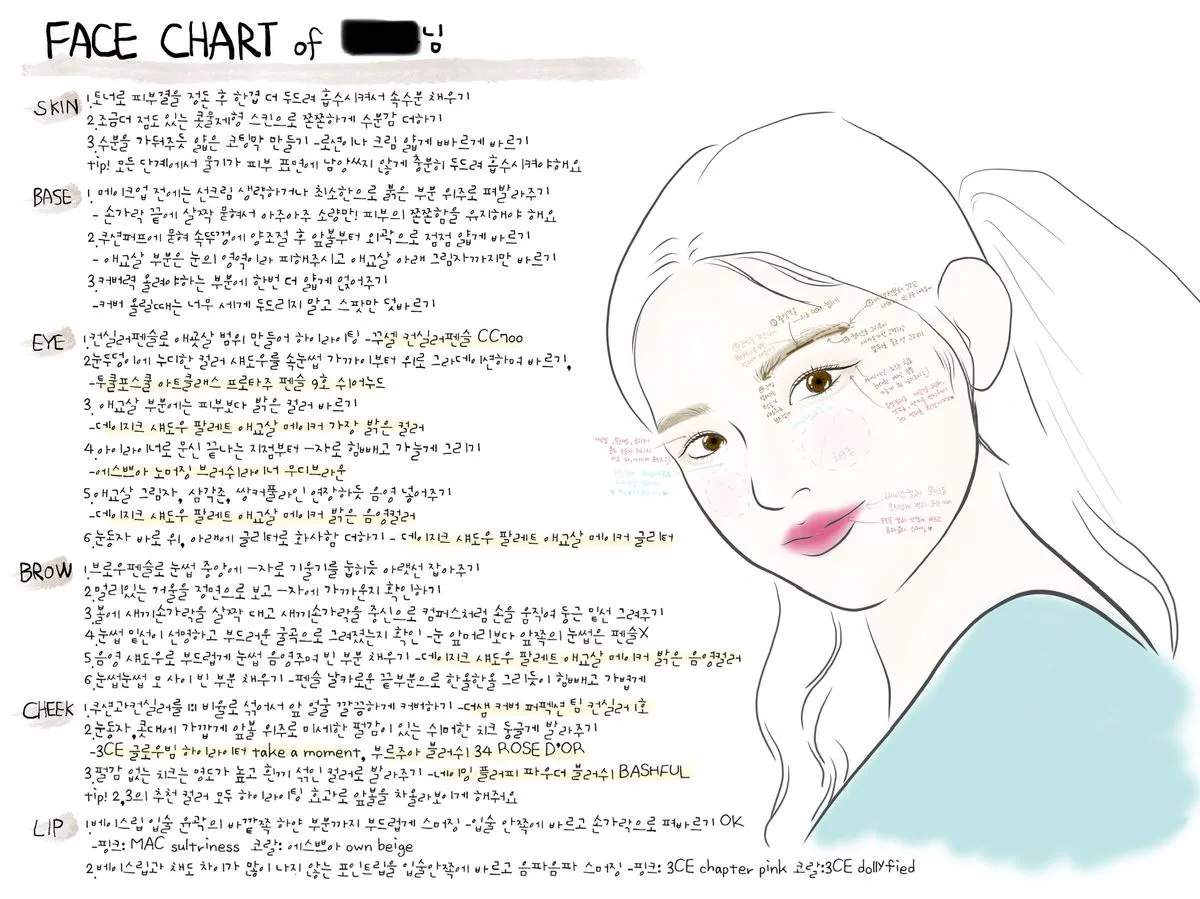 FACE CHART of 님
SKIN
1.토너로 피부결을 정돈 후 한겹 더 두드려 흡수시켜서 속수분 채우기
2.조금더 점도 있는 콧물제형 스킨으로 쫀쫀하게 수분감 더하기
3.수분을 가둬주듯 얇은 코팅막 만들기 -로션이나 크림 얇게 빠르게 바르기
tip! 모든 단계에서 물기가 피부 표면에 남았있지 않게 충분히 두드려 흡수시켜야해요
BASE
1. 메이크업 전에는 선크림 생략하거나 최소한으로 붉은 부분 위주로 펴발라주기
- 손가락 끝에 살짝 묻혀서 아주아주 소량만! 피부의 쫀쫀함을 유지해야 해요
2.쿠션퍼프에 묻혀 속뚜껑에 양조절 후 앞볼부터 외곽으로 점점 얇게 바르기
- 애교살 부분은 눈의 영역이라 피해주시고 애교살 아래 그림자까지만 바르기
3.커버력 올려야하는 부분에 한번 더 얇게 얹어주기
-커버 올릴때는 너무 세게 두드리지 말고 스팟만 덧바르기
EYE
1.컨실러펜슬로 애굣살 범위 만들어 하이라이팅 -꾸셀 컨실러펜슬 CC700
2눈두덩이에 누디한 컬러 섀도우를 속눈썹 가까이부터 위로 그라데이션하며 바르기,
-투쿨포스쿨 아트클래스 프로타주 펜슬 9호 쉬어누드
3. 애교살 부분에는 피부보다 밝은 컬러 바르기
-데이지크 섀도우 팔레트 애교살 메이커 가장 밝은 컬러
4.아이라이너로 문신 끝나는 지점부터 一자로 힘빼고 가늘게 그리기
-에스쁘아 노머징 브러쉬라이너 무디브라운
5.애교살 그림자, 삼각존, 쌍커풀라인 연장하듯 음영 넣어주기
-데이지크 섀도우 팔레트 애교살 메이커 밝은 음영컬러
6.눈동자 바로 위, 아래에 글리터로 화사함 더하기 - 데이지크 섀도우 팔레트 애교살 메이커 글리터
BROW
1.브로우펜슬로 눈썹 중앙에 一자로 기울기를 눕히듯 아랫선 잡아주기
2.멀리있는 거울을 정면으로 보고 一자에 가까운지 확인하기
3.볼에 새끼손가락을 살짝 대고 새끼손가락을 중심으로 컴퍼스처럼 손을 움직여 둥근 밑선 그려주기
4.눈썹 밑선이 선명하고 부드러운 굴곡으로 그려졌는지 확인 -눈 앞머리보다 앞쪽의 눈썹은 펜슬X
5.음영 섀도우로 부드럽게 눈썹 음영주며 빈 부분 채우기 -데이지크 섀도우 팔레트 애교살 메이커 밝은 음영컬러
6.눈썹눈썹 모 사이 빈 부분 채우기 -펜슬 날카로운 끝부분으로 한올한올 그리듯이 힘빼고 가볍게
CHEEK
1.쿠션과컨실러를 1:1 비율로 섞어서 앞 얼굴 깔끔하게 커버하기 -더샘 커버 퍼펙션 팁 컨실러 1호
2.눈동자,콧대에 가깝게 앞볼 위주로 미세한 펄감이 있는 쉬머한 치크 둥글게 발라주기
-3CE 글로우빔 하이라이터 take a moment, 부르주아 블러쉬 34 ROSE D'OR
3.펄감 없는 치크는 명도가 높고 흰끼 섞인 컬러로 발라주기 -네이밍 플러피 파우더 블러쉬 BASHFUL
tip! 2,3의 추천 컬러 모두 하이라이팅 효과로 앞볼을 차올라보이게 해줘요
LIP
1.베이스립 입술 윤곽의 바깥쪽 하얀 부분까지 부드럽게 스머징 -입술 안쪽에 바르고 손가락으로 펴바르기 OK
-핑크: MAC sultriness 코랄: 에스쁘아 own beige
2.베이스립과 채도 차이가 많이 나지 않는 포인트립을 입술안쪽에 바르고 음파음파 스머징 -핑크: 3CE chapter pink 코랄:3CE dollyfied